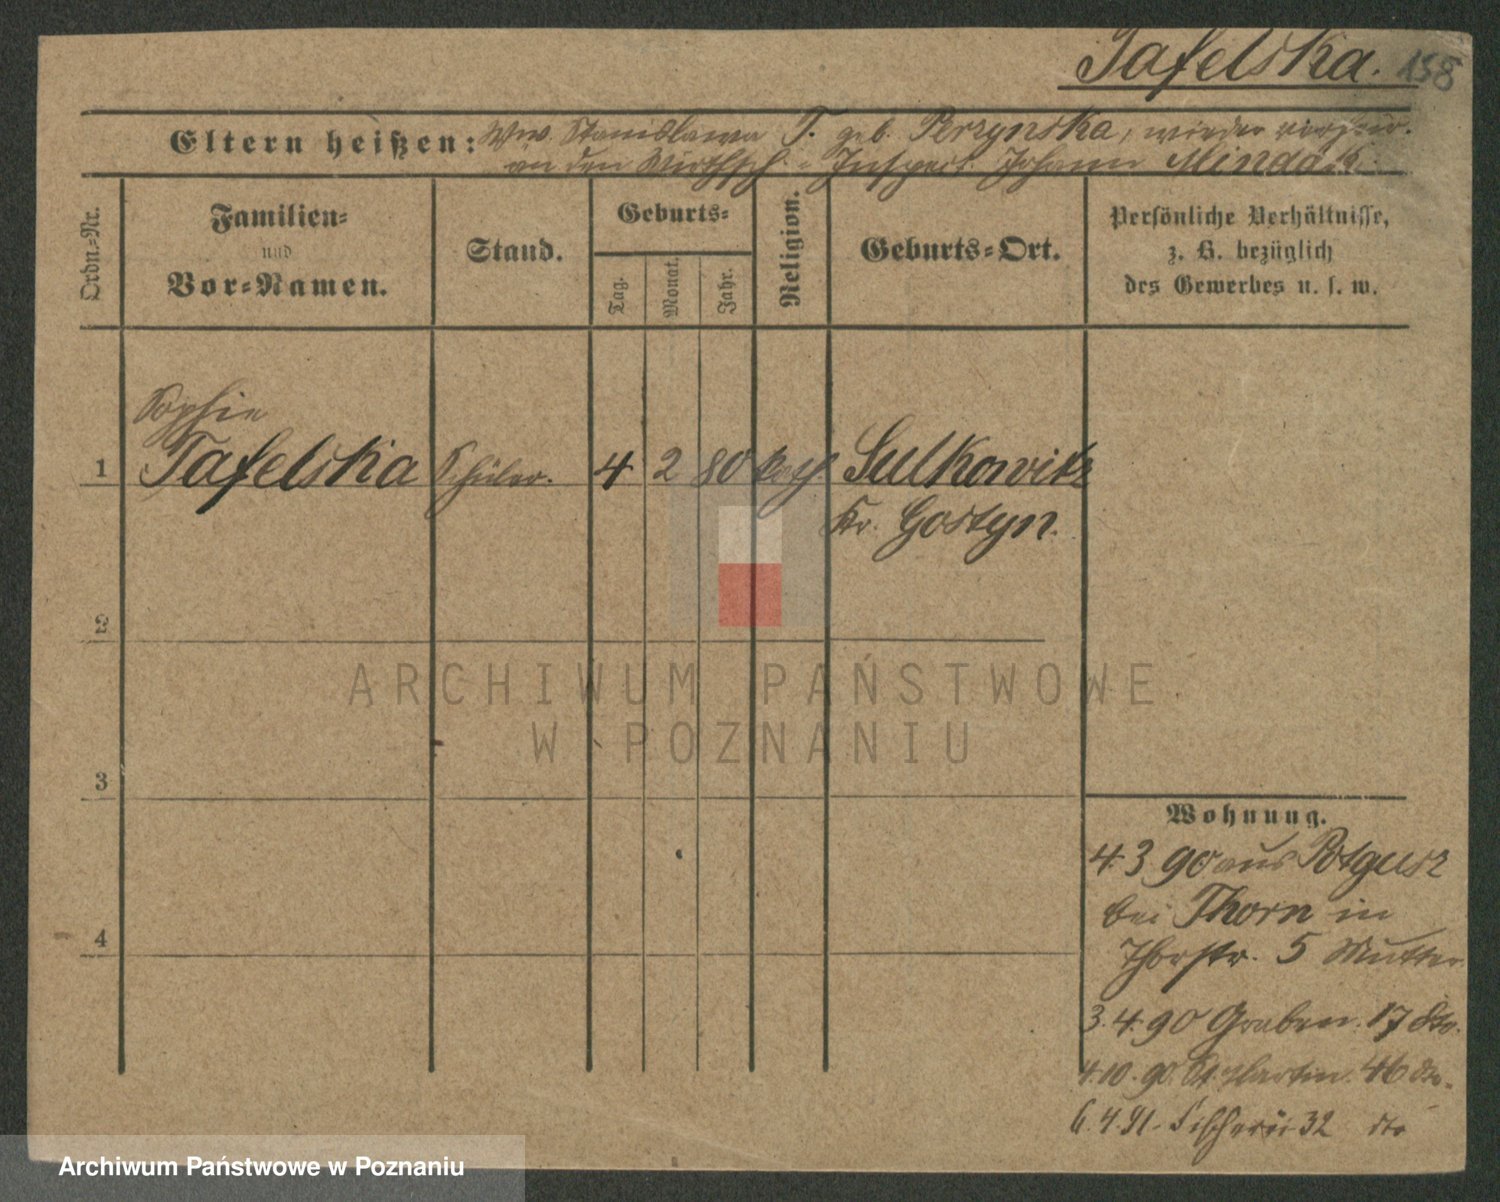 Tafelska. 158
Eltern heißen: Ww. Stanislawa T. geb. Perzynska, wieder verheir.
an den Wirthsch.-Inspect. Johann Mindak.
Ordn.-Nr.
Familien-
und
Vor-Namen.
Stand.
Geburts-
Tag.
Monat.
Jahr.
Religion.
Geburts-Ort.
Persönliche Verhältnisse,
z. B. bezüglich
des Gewerbes u. s. w.
Sophie
1 Tafelska Schüler. 4 2 80 kath. Sulkowitz
Kr. Gostyn.
2
3
4
Wohnung.
4.3 90 aus Potgusz
bei Thorn in
Thorstr. 5 Mutter
3.4.90 Graben. 17 dto.
4.10.90. St. Martin. 46 dto.
6.4.91. Fischerei 32 dto
ARCHIWUM PAŃSTWOWE
W POZNANIU
Archiwum Państwowe w Poznaniu